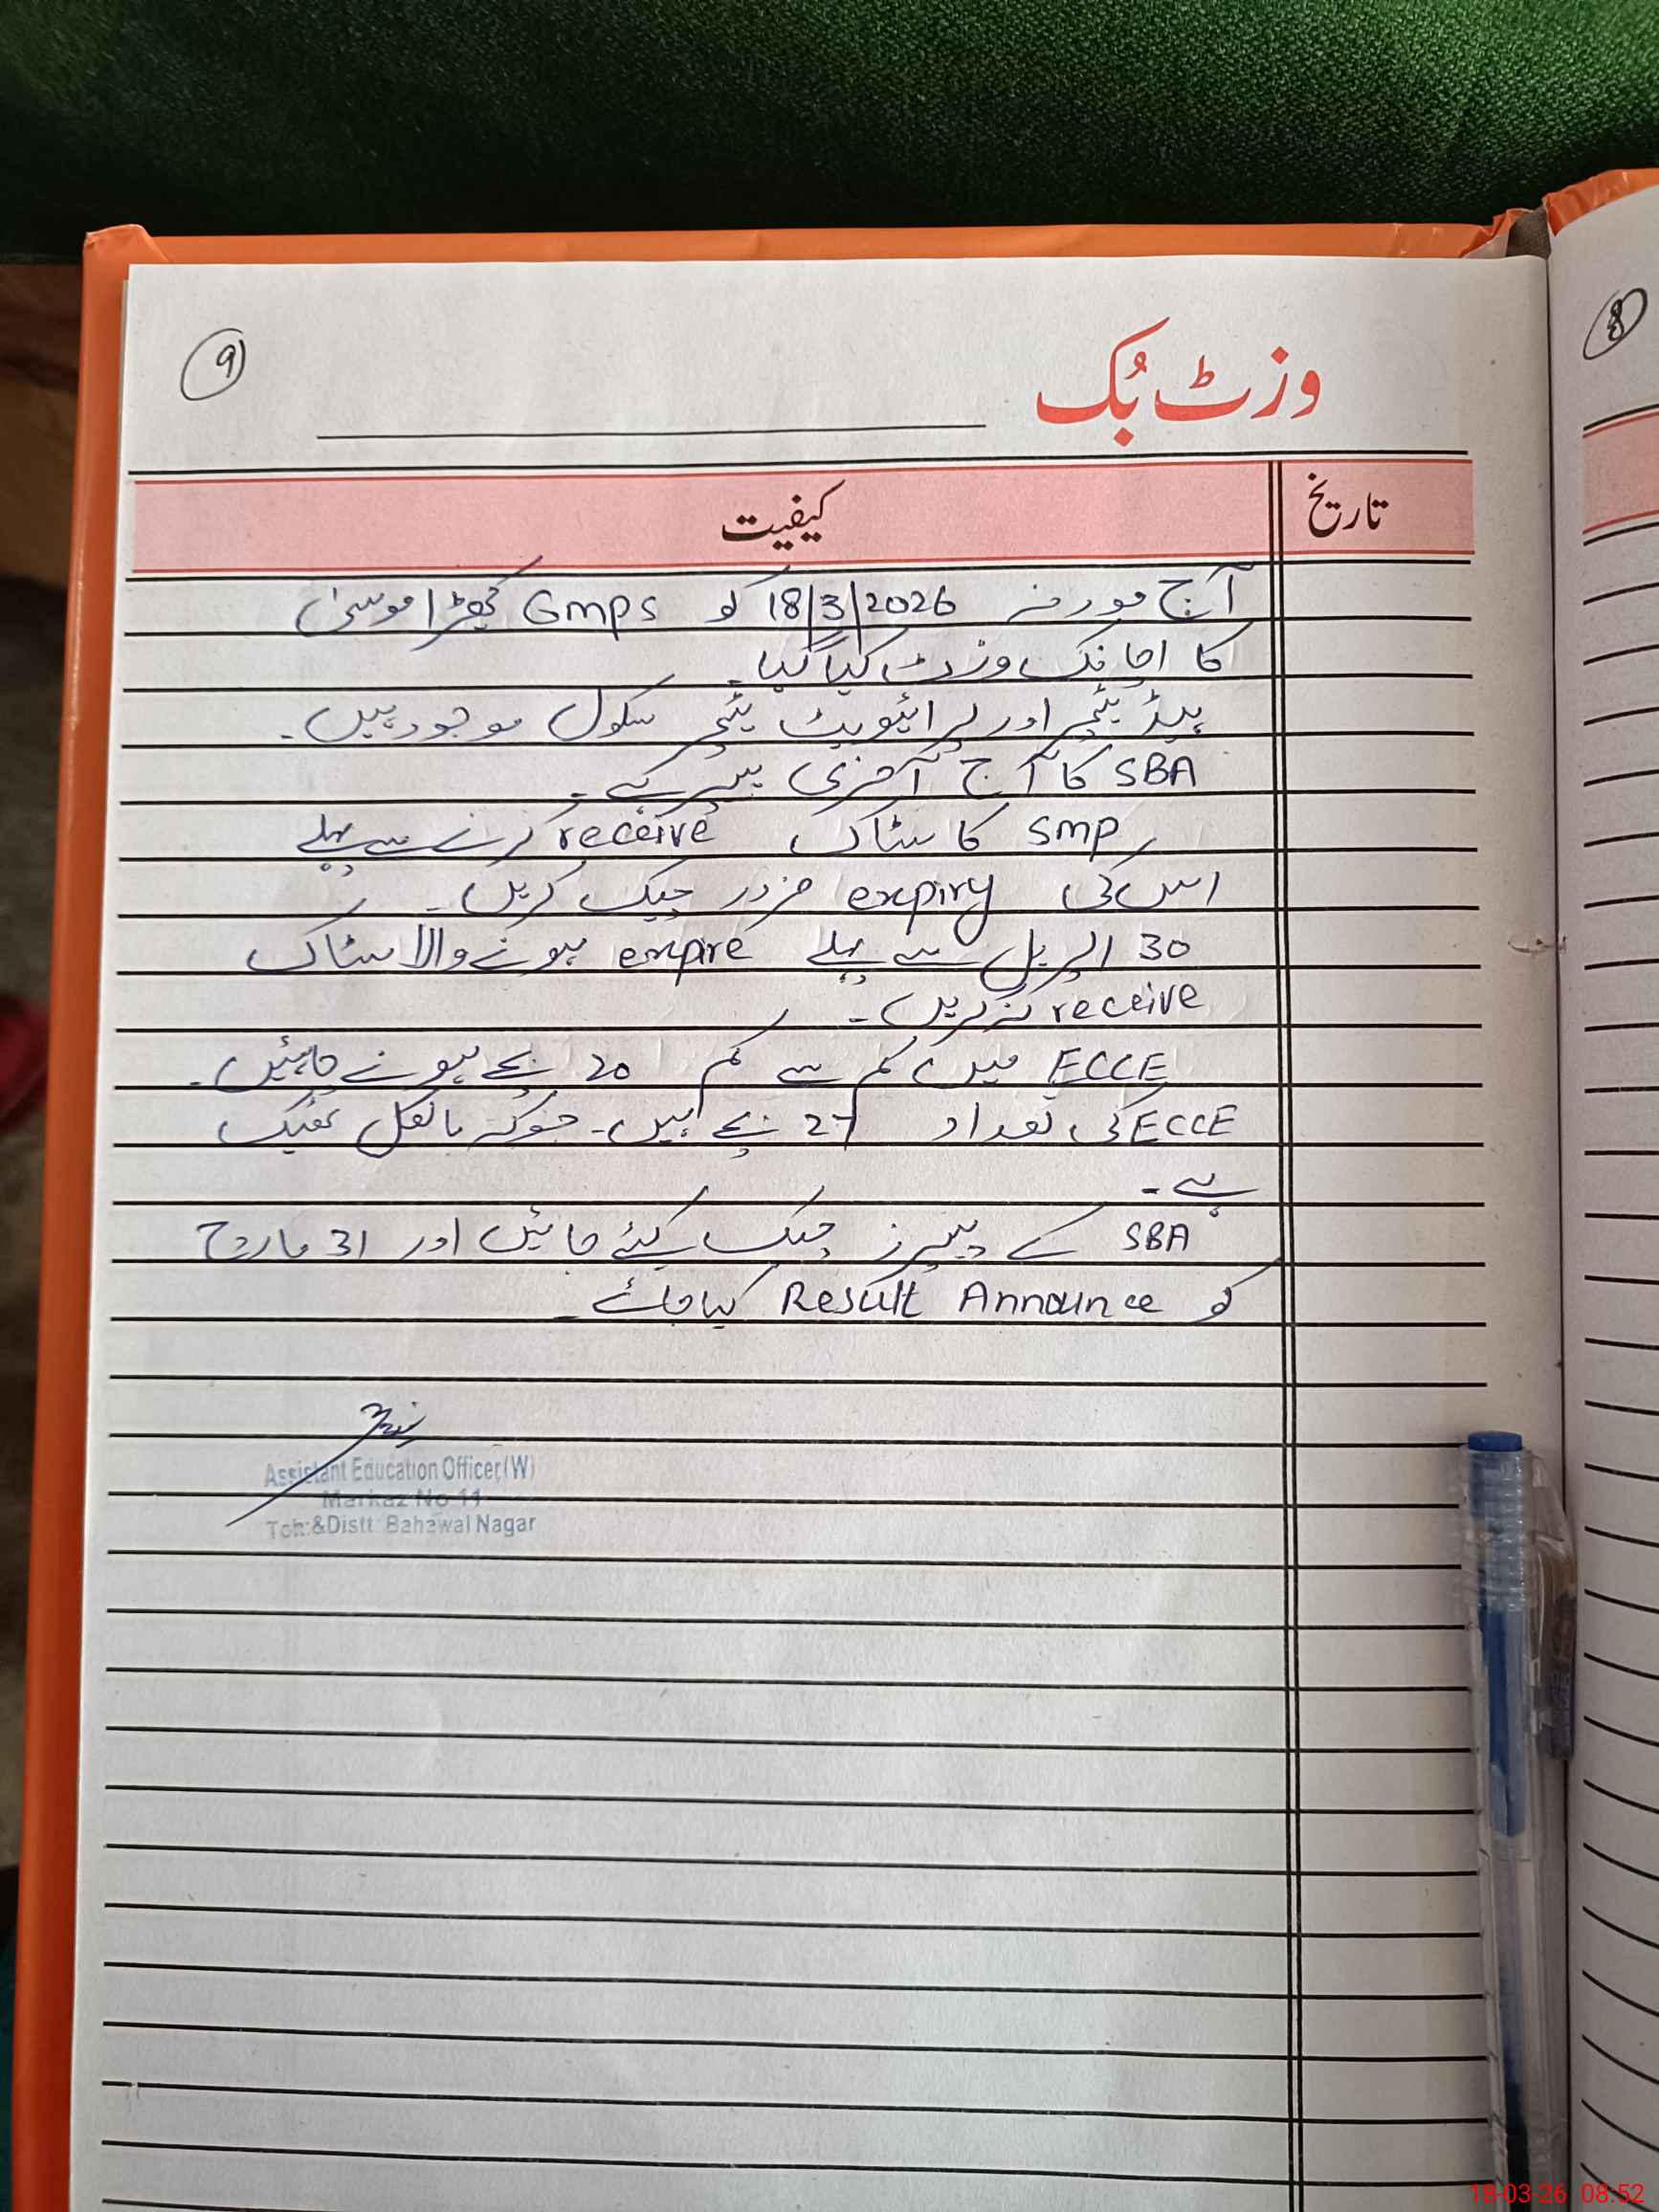 9
8
وزٹ بُک
تاریخ
کیفیت
آج مورخہ 18/3/2026 کو Gmps موسیٰ
کا اچانک وزٹ کیا گیا۔
ہیڈ ٹیچر اور پرائیویٹ ٹیچر سکول موجود ہیں۔
SBA کا آج آخری پیپر ہے۔
SMP کا سٹاک receive کرنے سے پہلے
اس کی expiry ضرور چیک کریں۔
30 اپریل سے پہلے expire ہونے والا سٹاک
receive نہ کریں۔
ECCE میں کم سے کم 20 بچے ہونے چاہئیں۔
ECCE کی تعداد 27 بچے ہیں۔ جوکہ بالکل ٹھیک
ہے۔
SBA کے پیپرز چیک کیئے جائیں اور 31 مارچ
کو Result Announce کیا جائے۔
Assistant Education Officer,(W)
Markaz No 11
Teh:&Distt: Bahawal Nagar
18-03-26 08:52